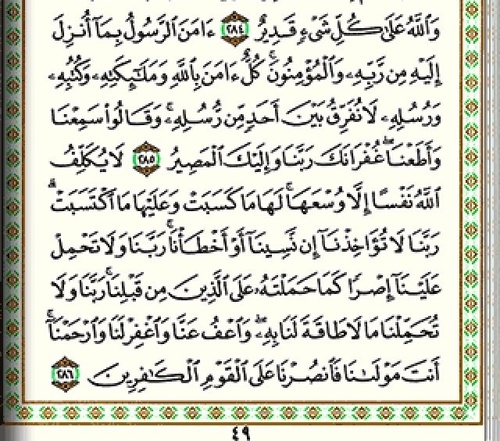 وَٱللَّهُ عَلَىٰ كُلِّ شَىْءٍ قَدِيرٌ ٢٨٤ ءَامَنَ ٱلرَّسُولُ بِمَآ أُنزِلَ
إِلَيْهِ مِن رَّبِّهِۦ وَٱلْمُؤْمِنُونَ ۚ كُلٌّ ءَامَنَ بِٱللَّهِ وَمَلَـٰٓئِكَتِهِۦ وَكُتُبِهِۦ
وَرُسُلِهِۦ لَا نُفَرِّقُ بَيْنَ أَحَدٍ مِّن رُّسُلِهِۦ ۚ وَقَالُوا۟ سَمِعْنَا
وَأَطَعْنَا ۖ غُفْرَانَكَ رَبَّنَا وَإِلَيْكَ ٱلْمَصِيرُ ٢٨٥ لَا يُكَلِّفُ
ٱللَّهُ نَفْسًا إِلَّا وُسْعَهَا ۚ لَهَا مَا كَسَبَتْ وَعَلَيْهَا مَا ٱكْتَسَبَتْ ۗ
رَبَّنَا لَا تُؤَاخِذْنَآ إِن نَّسِينَآ أَوْ أَخْطَأْنَا ۚ رَبَّنَا وَلَا تَحْمِلْ
عَلَيْنَآ إِصْرًا كَمَا حَمَلْتَهُۥ عَلَى ٱلَّذِينَ مِن قَبْلِنَا ۚ رَبَّنَا وَلَا
تُحَمِّلْنَا مَا لَا طَاقَةَ لَنَا بِهِۦ ۖ وَٱعْفُ عَنَّا وَٱغْفِرْ لَنَا وَٱرْحَمْنَآ ۚ
أَنتَ مَوْلَىٰنَا فَٱنصُرْنَا عَلَى ٱلْقَوْمِ ٱلْكَـٰفِرِينَ ٢٨٦
٤٩